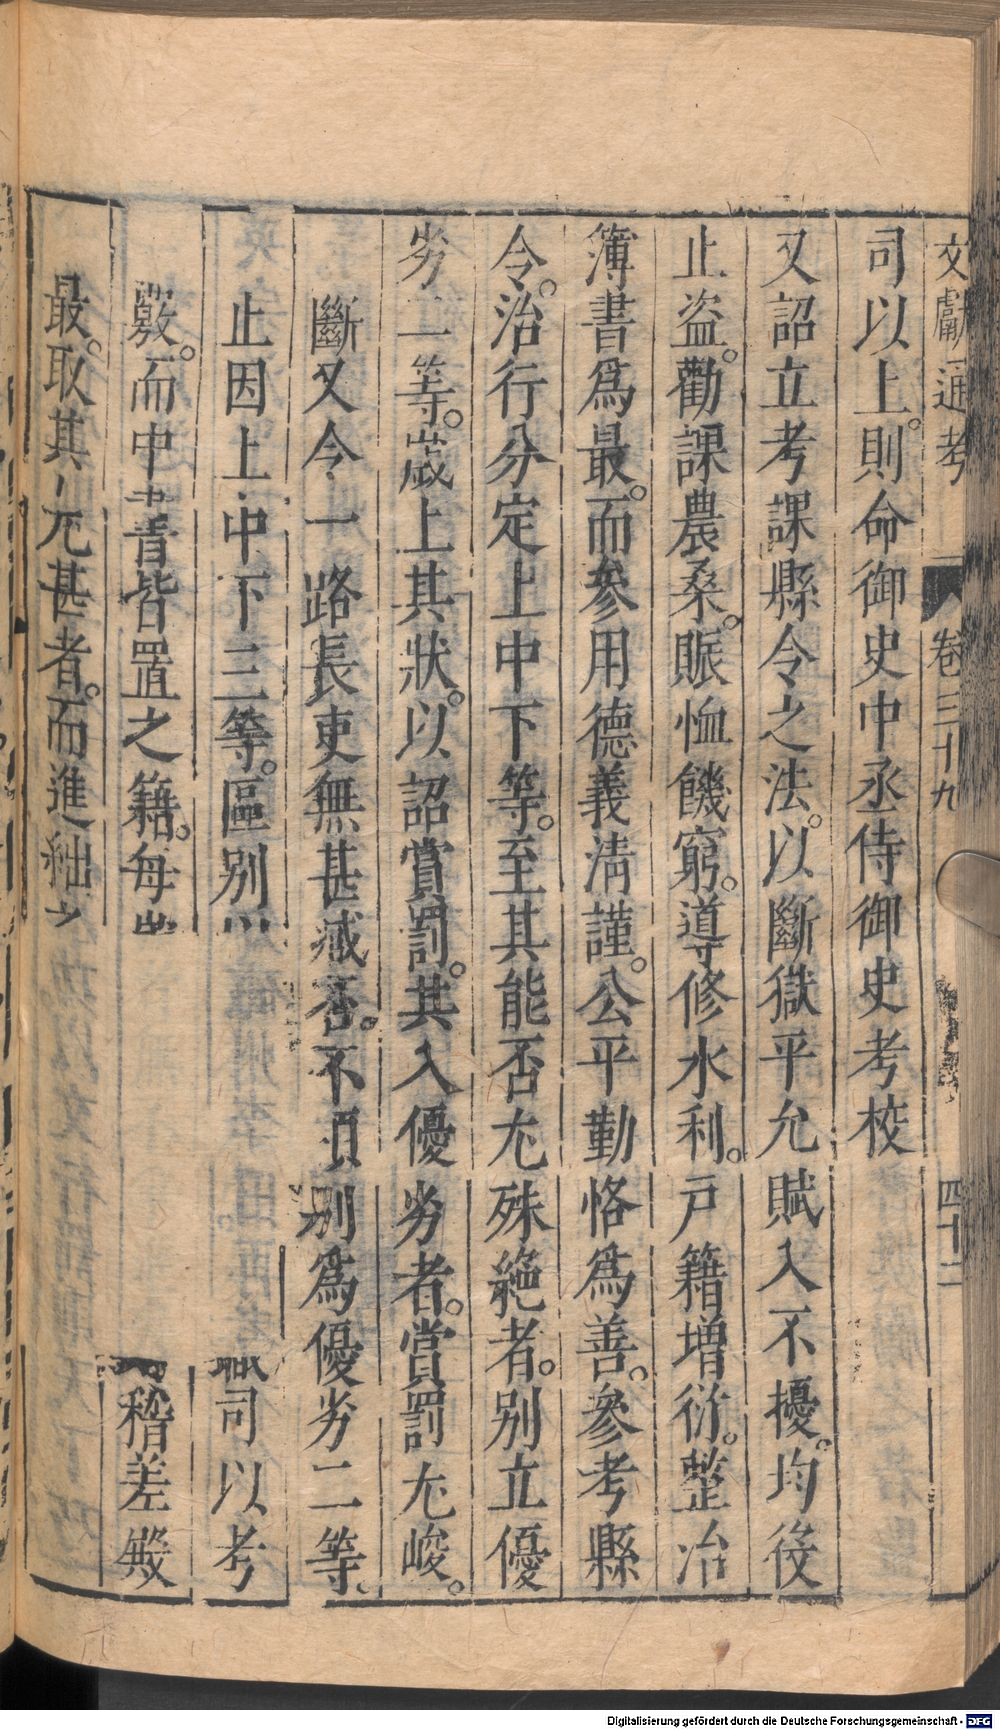 文獻通考 卷三十九 四十二
司以上。則命御史中丞侍御史考校
又詔立考課縣令之法。以斷獄平允賦入不擾。均役
止盗。勸課農桑。賑恤饑窮。導修水利。戸籍增衍。整治
簿書爲最。而參用德義清謹。公平勤恪爲善。參考縣
令。治行分定上中下等。至其能否尤殊絶者。别立優
劣二等。歲上其狀。以詔賞罰。其入優劣者。賞罰尤峻。
斷又令一路長吏無甚臧否。不須别爲優劣二等。
止因上中下三等。區别 職司以考
覈。而中書皆置之籍。每 稽差殿
最。取其尤甚者。而進絀之
Digitalisierung gefördert durch die Deutsche Forschungsgemeinschaft - DFG